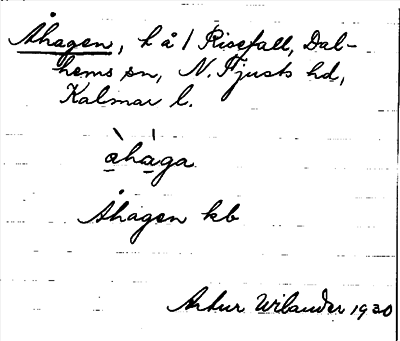 Åhagen, l å / Risefall, Dal-
hems sn, N. Tjusts hd,
Kalmar l.
àhàga
Åhagen kb
Artur Wilander 1930